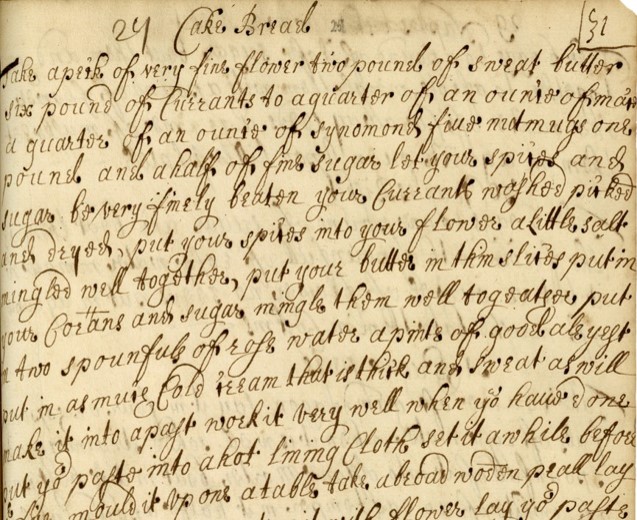 24 Cake Bread 31
Take a peck of very fine flower two pound of sweat butter
six pound of Currants to a quarter of an ounce of mace
a quarter of an ounce of synomond five nutmugs one
pound and a half of fine sugar let your spices and
sugar be very finely beaten your Currants washed picked
and dryed, put your spices into your flower a Little salt
mingled well together, put your butter in thin slices put in
your Corrans and sugar mingle them well togeather put
in two spounfuls of rose water a pinte of good ale yest
put in as much Cold cream that is thick and sweat as will
make it into a past work it very well when yo have done
put yor paste into a hot lining Cloth set it a while before
mould it up one a table take a broad woden peall lay
flower lay yor paste